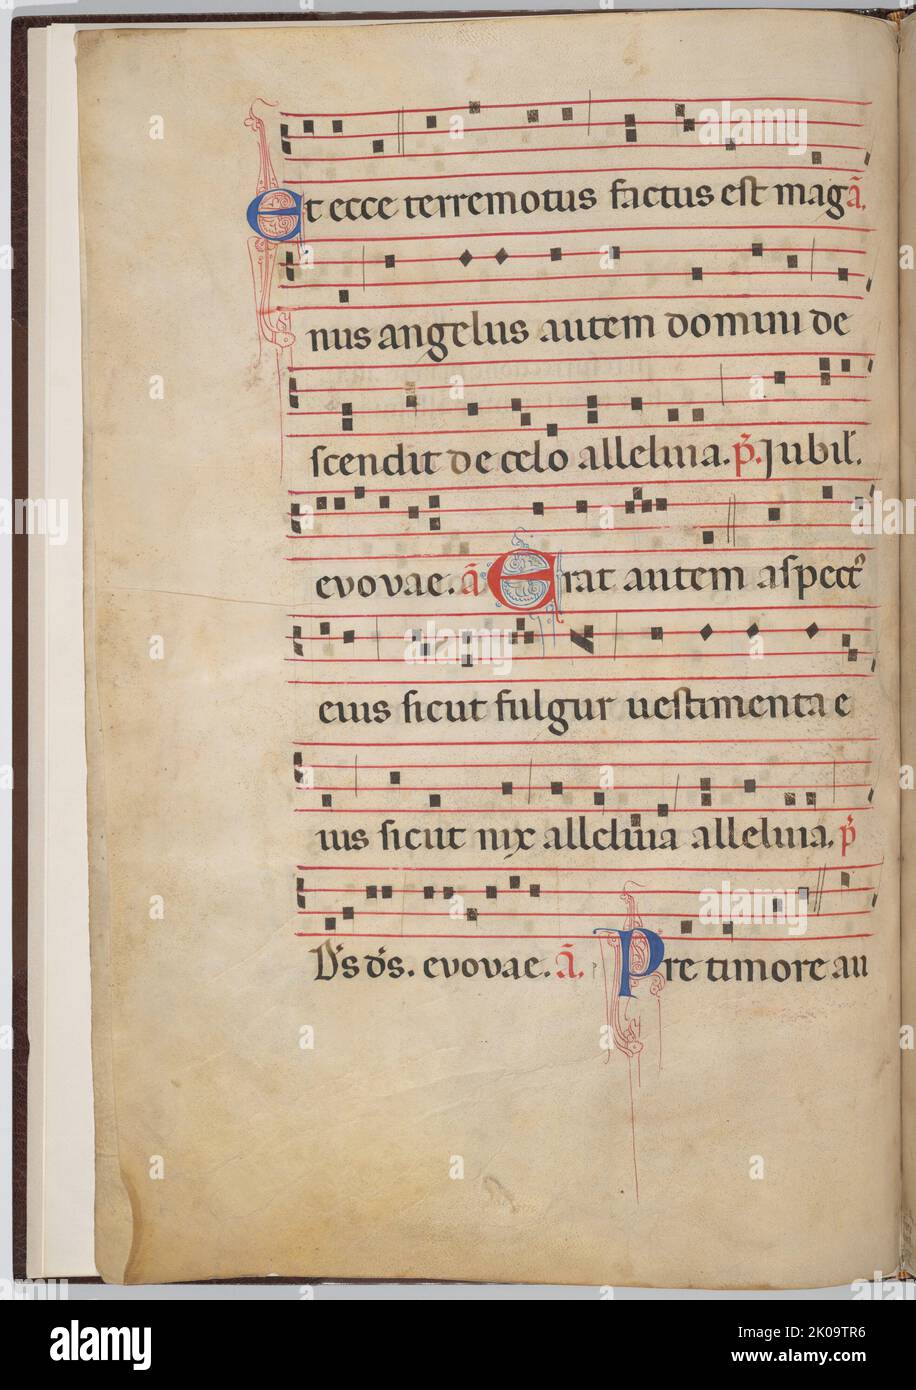 Et ecce terremotus factus est mag ā.
nus angelus autem domini de
scendit de celo alleluia. p̄. Jubil̄.
evovae. ā Erat autem aspectꝰ
eius sicut fulgur uestimenta e
ius sicut nix alleluia alleluia. p̄
D̄s d̄s. evovae. ā. Pre timore au
alamy
Image ID: 2K09TR6
www.alamy.com